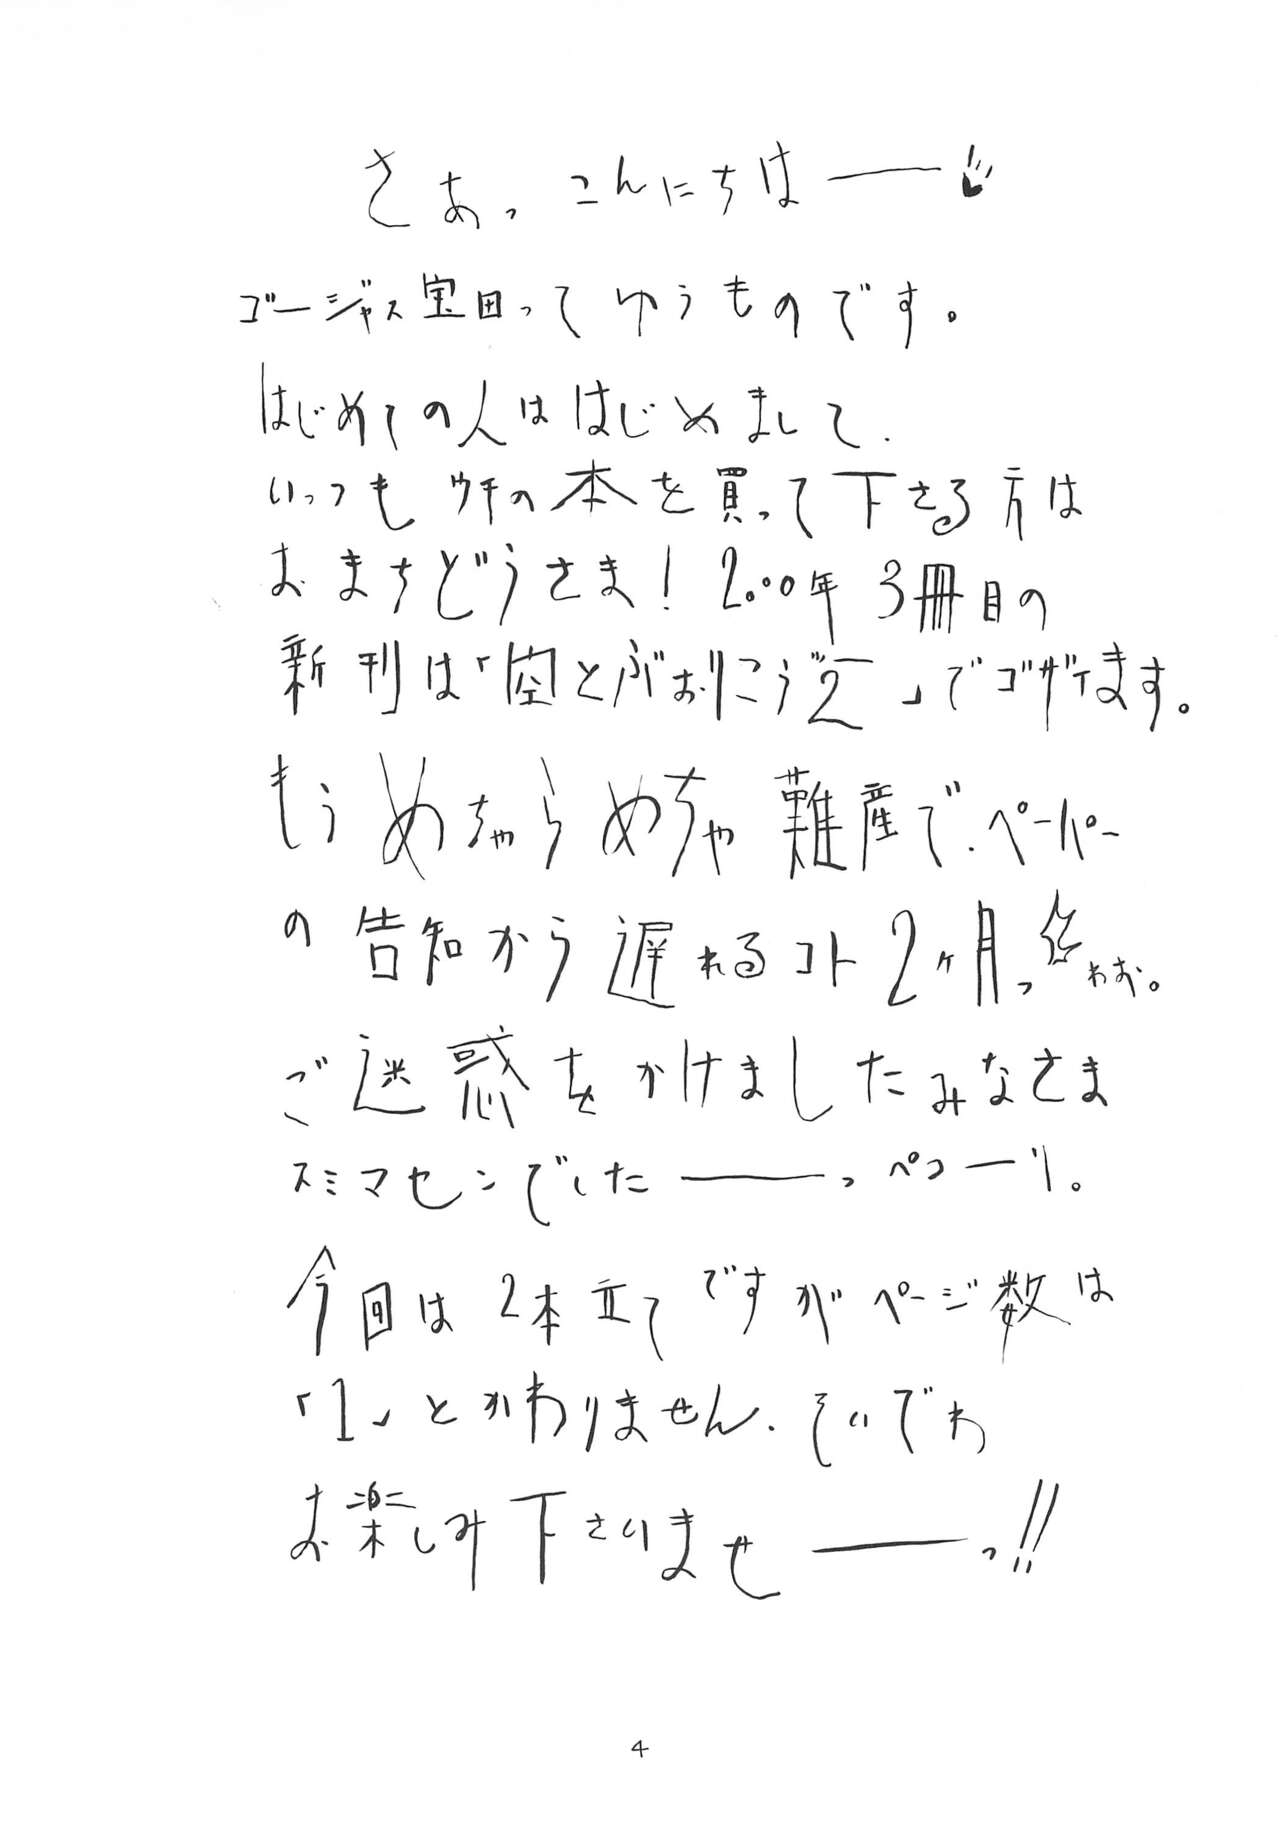 さあっ こんにちは――
ゴージャス宝田ってゆうものです。
はじめての人ははじめまして.
いっつもウチの本を買って下さる方は
おまちどうさま! 2000年3冊目の
新刊は「空とぶおりこう2」でゴザイます。
もうめちゃらめちゃ難産で.ペーパー
の告知から遅れるコト2ヶ月っ わお。
ご迷惑をかけましたみなさま
スミマセンでした――っ ペコーリ。
今回は2本立てですがページ数は
「1」とかわりません. そいでわ
お楽しみ下さいませ――っ!!
4